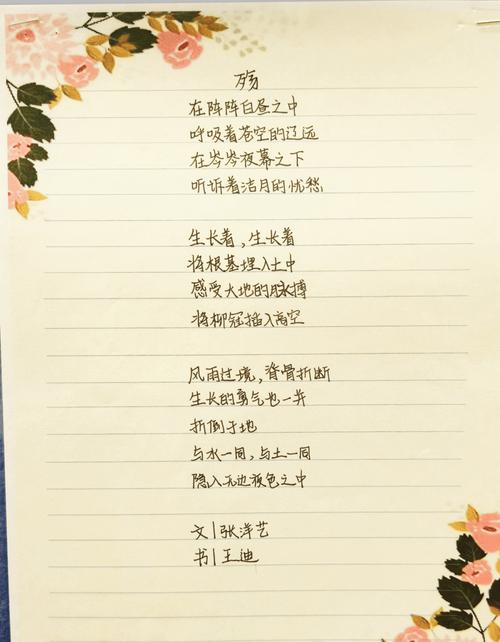 殇
在阵阵白昼之中
呼吸着苍空的辽远
在岑岑夜幕之下
听诉着洁月的忧愁
生长着,生长着
将根基埋入土中
感受大地的脉搏
将柳冠插入高空
风雨过境,脊骨折断
生长的勇气也一并
折倒于地
与水一同,与土一同
隐入无边夜色之中
文|张洋艺
书|王迪